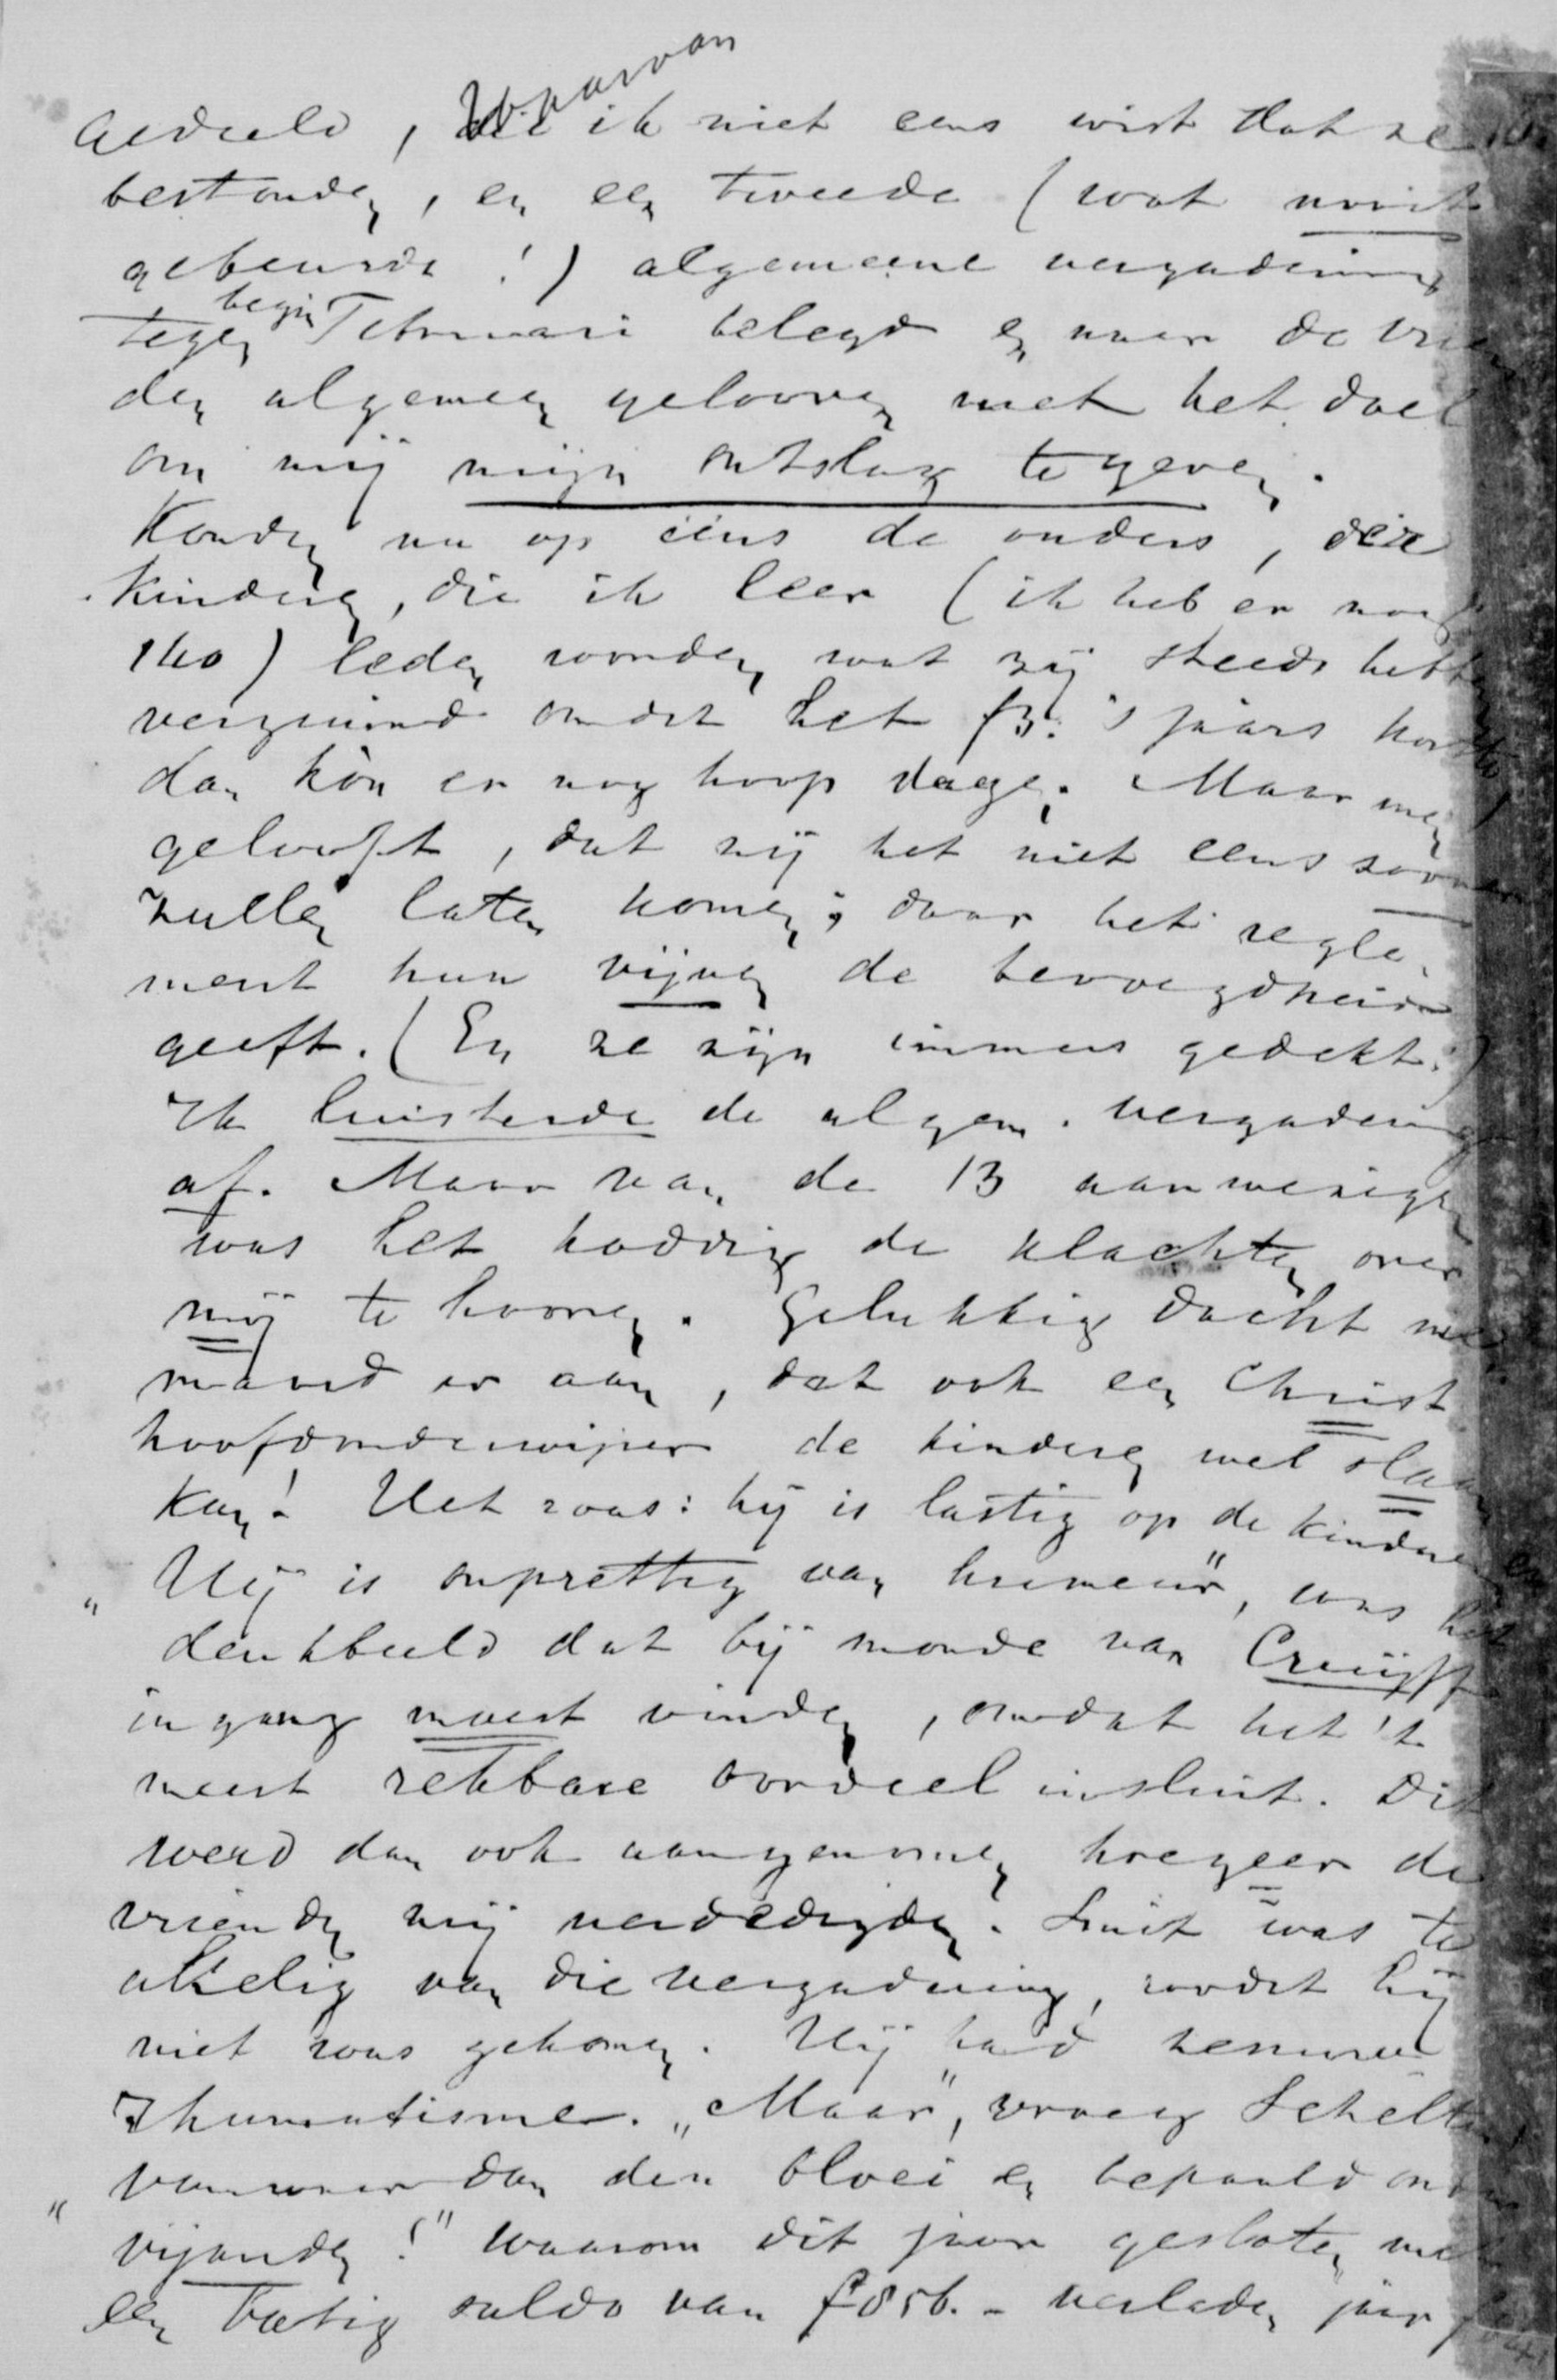 waarvan
gedeeld, die ik niet eens wist dat ze
bestonden, en een tweede (wat nooit
gebeurde!) algemeene vergadering
begin
tegen Februari belegd en naar de vrien
den algemeen gelooven met het doel
om mij mijn ontslag te geven.
Konden nu op eens de ouders, der
kinderen, die ik leer (ik heb er nog
160) leden worden, wat zij steeds hebben
verzuimd omdat het f3. 's jaars kostte
dan kòn er nog hoop dagen. Maar men
gelooft, dat zij het niet eens
zullen laten komen; daar het regle-
ment hun vijven de bevoegdheid
geeft. (En ze zijn immers gedekt.)
Ik luisterde de algem. vergadering
af. Maar van de 13 aanwezigen
was het koddig de klachten over
mij te hooren. Gelukkig dacht nie-
mand er aan, dat ook een Christ
hoofdonderwijzer de kinderen wel slaan
kan! Het was: hij is lastig op de kinderen
„Hij is onprettig van humeur", was het
denkbeeld dat bij monde van Cruijff
ingang moest vinden, omdat het 't
meest rekbare oordeel insluit. Dit
werd dan ook aangenomen hoezeer de
vrienden mij verdedigden. Smit was te
akelig van die vergadering, zoodat hij
niet was gekomen. Hij had
rhumatisme. „Maar", vroeg Schelt
„vanwaar dan den bloei en bepaald
vijanden!" waarom dit jaar gesloten met
een batig saldo van f 856.- verleden jaar